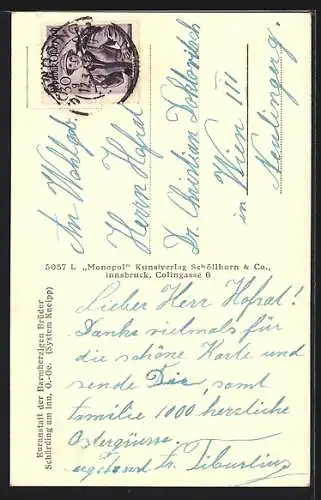 An Wohlgeb.
Herrn Hofrat
Dr. Christian Doktoritsch
in Wien III
Neulinger g.
5057 L „Monopol" Kunstverlag Schöllhorn & Co.,
Innsbruck, Colingasse 6
Kuranstalt der Barmherzigen Brüder
Schärding am Inn, O.-Oe. (System Kneipp)
Lieber Herr Hofrat!
Danke vielmals für
die schöne Karte und
sende Dir, samt
familie 1000 herzliche
Ostergrüsse.
fr. Tiburtius